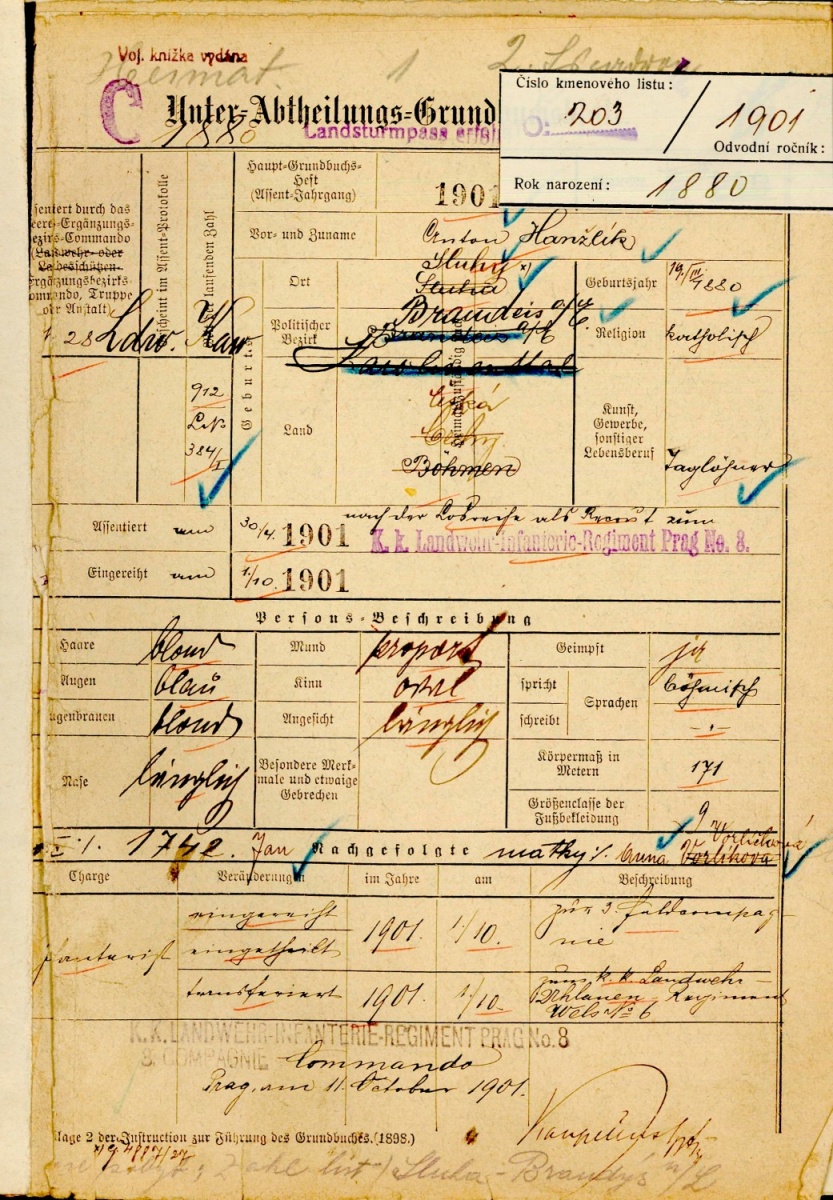 Voj. knížka vydána
Heimat. 1
C Unter-Abtheilungs-Grund
1880 Landsturmpass erfol
Číslo kmenového listu:
203 / 1901
Odvodní ročník:
Rok narození: 1880
sentiert durch das
eeres-Ergänzungs-
ezirks-Commando
(Landwehr- oder
Landesschützen-
Ergänzungsbezirks-
ommando, Truppe
oder Anstalt)
28
Ldw.
scheint im Assent-Protokolle
laufenden Zahl
912
384/I
Haupt-Grundbuchs-
Heft
(Assent-Jahrgang)
1901
Vor- und Zuname
Anton Hanžlík
Geburts-
Ort
Sluhy x)
Sluha
Politischer
Bezirk
Brandeis a/E
Brandeis a/E
Karolinenthal
Land
Čechy
Böhmen
Geburtsjahr
19./III. 1880
Religion
katholisch
Kunst,
Gewerbe,
sonstiger
Lebensberuf
Taglöhner
Assentiert am 30/4. 1901 nach der Losreihe als Recrut zum
K. k. Landwehr-Infanterie-Regiment Prag No. 8.
Eingereiht am 1./10. 1901
Persons-Beschreibung
Haare blond
Mund proport
Geimpft ja
Augen blau
Kinn oval
spricht
Sprachen
böhmisch
genbrauen blond
Angesicht länglich
schreibt
-"-
Nase länglich
Besondere Merk-
male und etwaige
Gebrechen
Körpermaß in
Metern
171
Größenclasse der
Fußbekleidung
9
Vorlíčková
1742. Jan Nachgefolgte matky: Anna Vorlíkova
Charge
Veränderung
im Jahre
am
Beschreibung
fanterist
eingereiht
eingetheilt
1901. 1/10.
zur 3. Feldcompag-
nie
transferiert
1901. 1/10.
zum k. k. Landwehr-
Uhlanen Regiment
Wels No 6
K. K. LANDWEHR-INFANTERIE-REGIMENT PRAG No. 8
COMPAGNIE Commando
Prag, am 11. October 1901.
lage 2 der Instruction zur Führung des Grundbuches. (1898.)
Sluha - Brandýs n/L